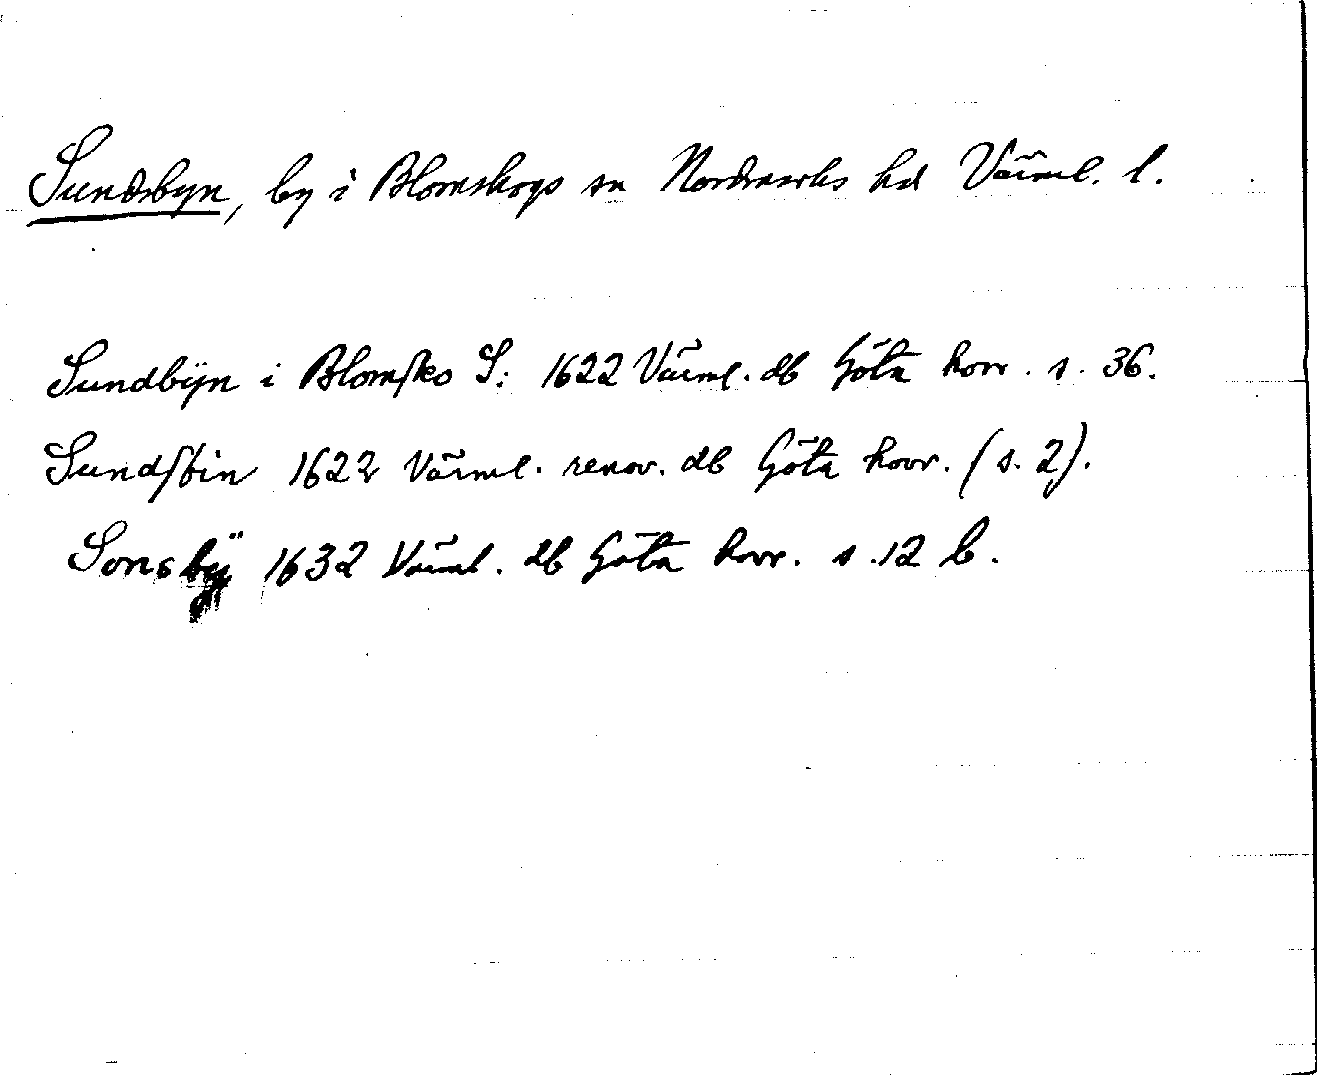 Sundsbyn, by i Blomskogs sn Nordmarks hd Värml. l.
Sundbÿn i Blomſko S: 1622 Värml. db Göta hovr. s. 36.
Sundſbin 1622 Värml. renov. db Göta hovr. (s. 2).
Sonsbÿ 1632 Värml. db Göta hovr. s. 12 b.